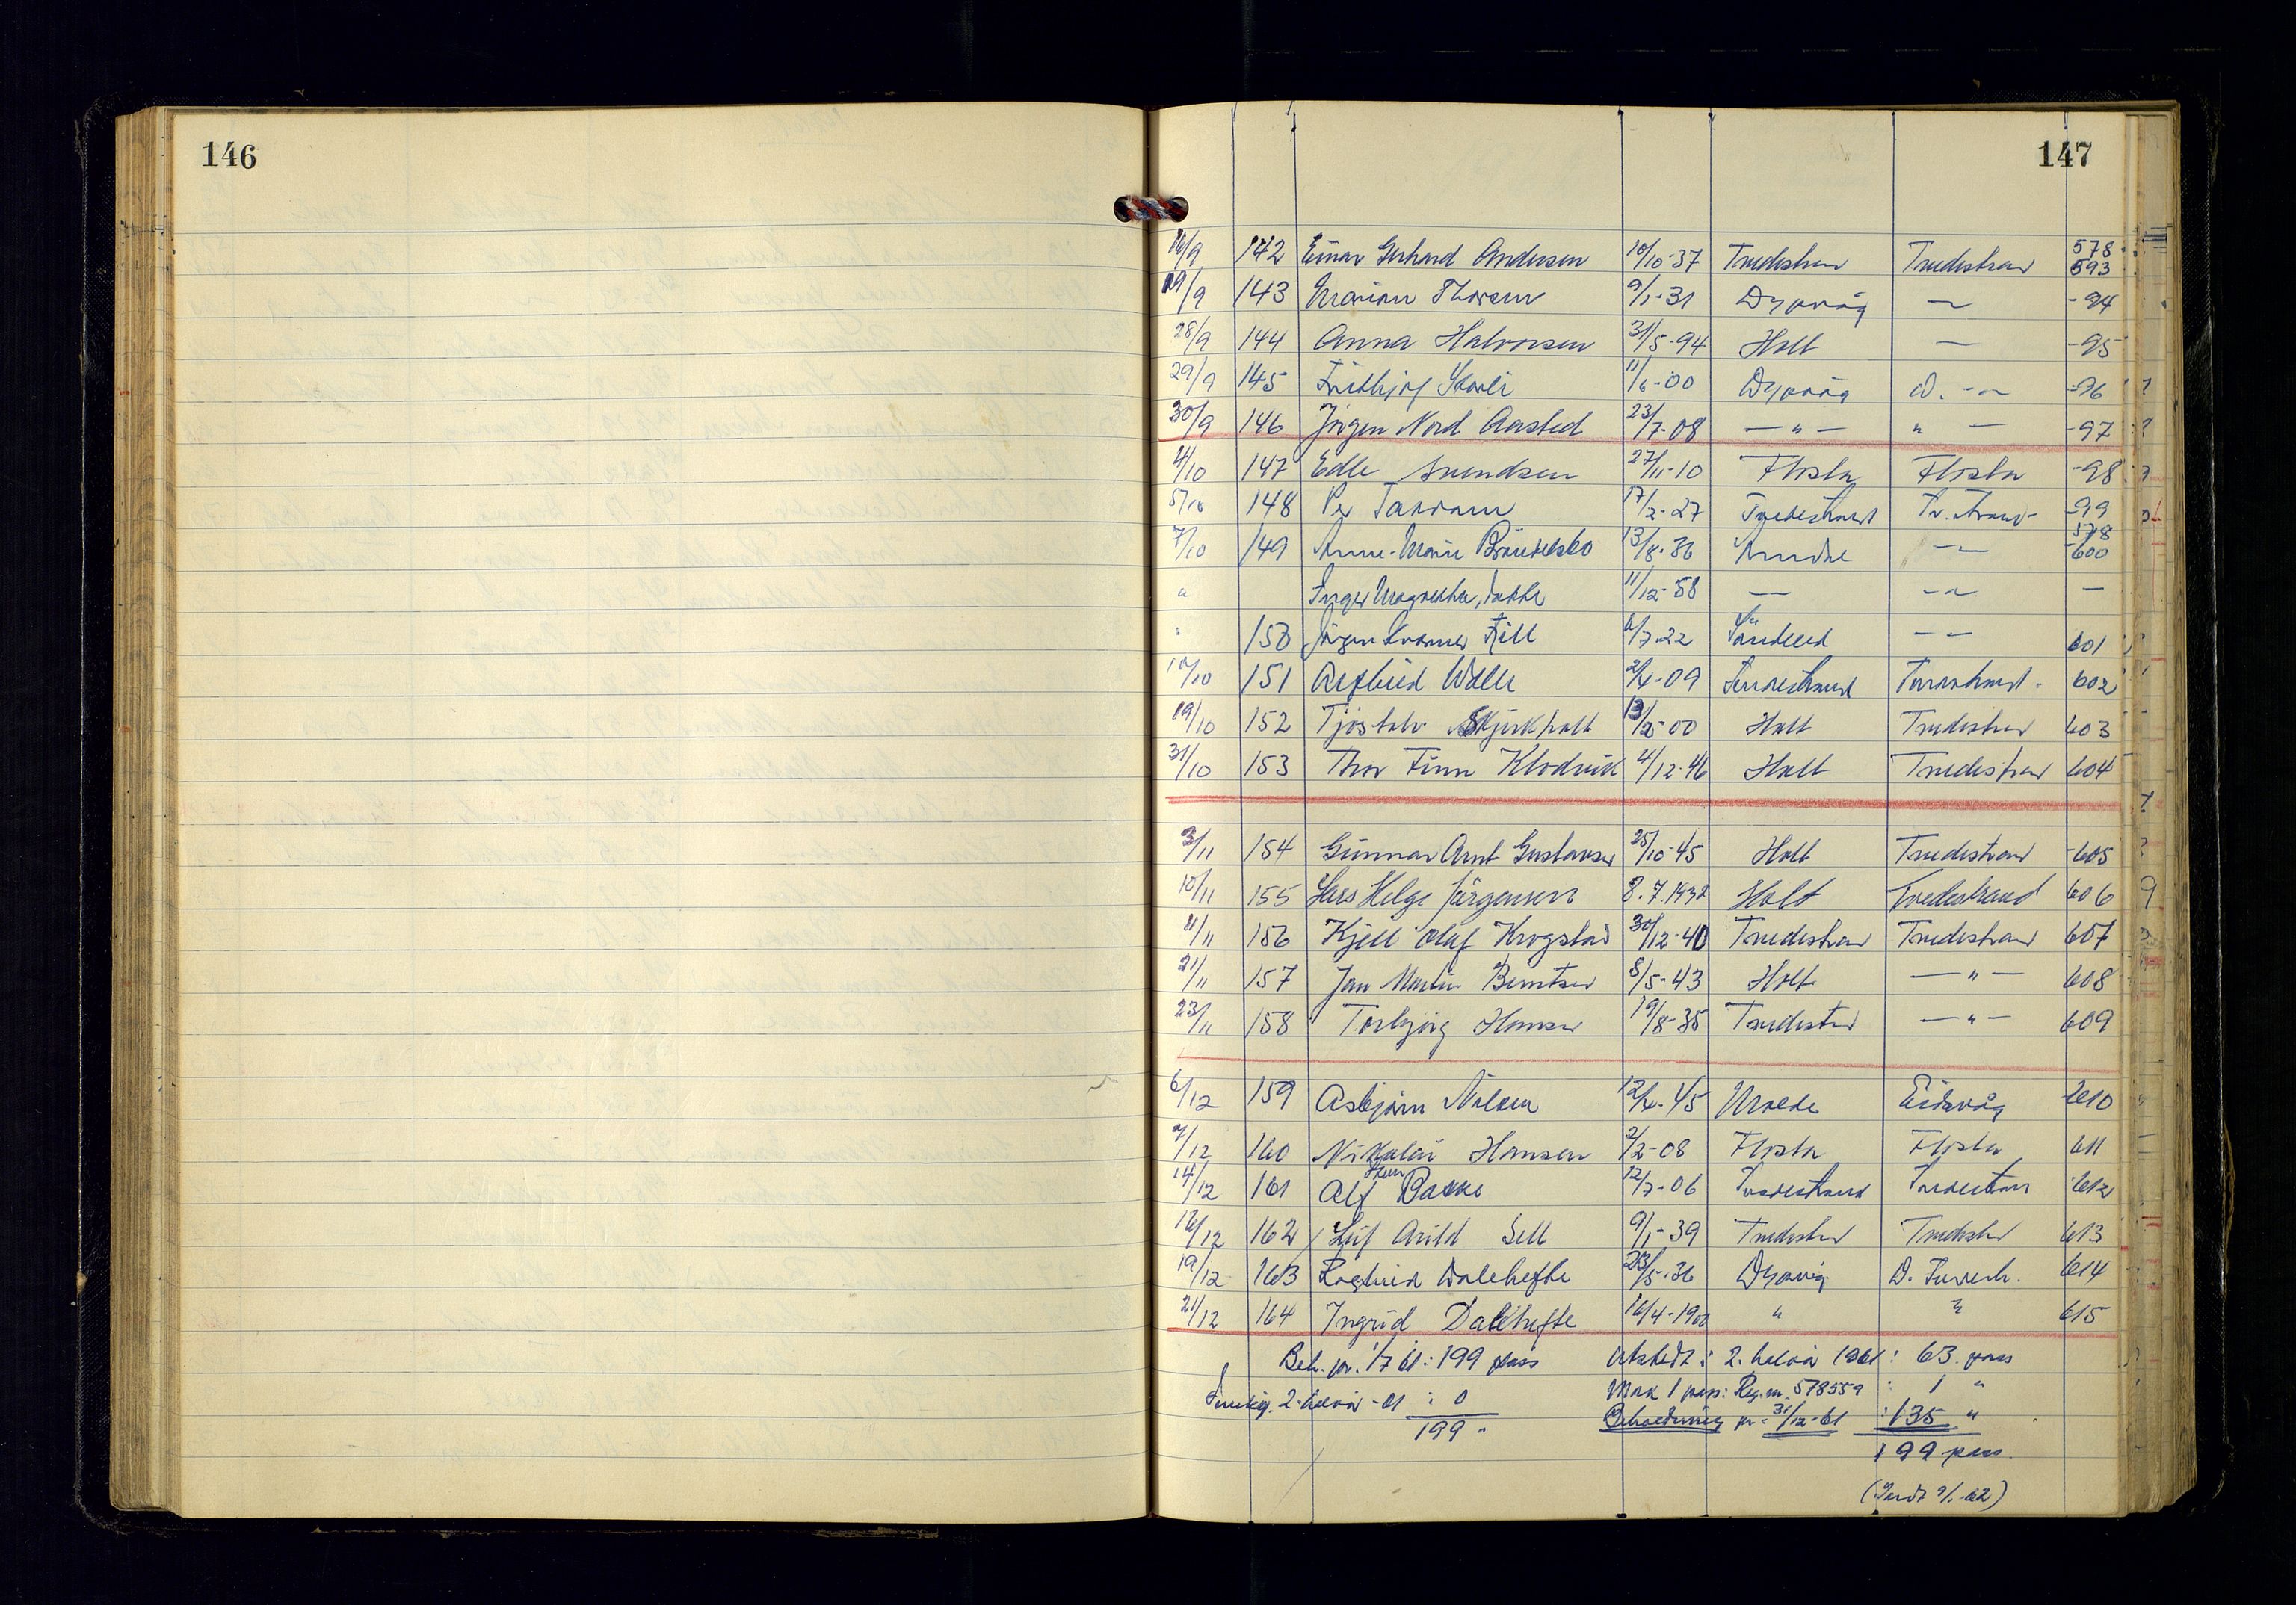 146
147
16/9 142 Einar Gerhard Andersen 10/10-37 Tvedestrand Tvedestrand 578 593
19/9 143 Marion Thorsen 9/1-31 Dypvåg — -94
28/9 144 Anna Halvorsen 31/5-94 Holt — -95
29/9 145 Fridthjof 11/6-00 Dypvåg D. -"- -96
30/9 146 Jörgen Nord Aarsted 23/7-08 -"- " — -97
4/10 147 Edle Svendsen 27/11-10 Flosta Flosta -98
5/10 148 Per 17/2-27 Tvedestrand Tv.strand -99
7/10 149 Anne-Marie 13/8-36 Arendal -"- 578 -600
" Inger Margrethe, datter 11/12-58 — -"- —
" 150 Jörgen 6/7-22 Söndeled -"- 601
14/10 151 Astrid 2/4-09 Tvedestrand Tvedestrand 602
19/10 152 Tjöstolv Skjerkholt 13/2-00 Holt Tvedestrand 603
31/10 153 Thor Finn Klodvik 4/12-46 Holt Tvedestrand 604
3/11 154 Gunnar Arnt Gustavsen 25/10-45 Holt Tvedestrand -605
10/11 155 Lars Helge Jörgensen 8.7.1932 Holt Tvedestrand 606
11/11 156 Kjell Olaf Krogstad 30/12-40 Tvedestrand Tvedestrand 607
21/11 157 Jan Martin Berntsen 8/5-43 Holt -"- 608
23/11 158 Torbjörg Hansen 19/8-35 Tvedestrand -"- 609
6/12 159 Asbjörn Nilsen 12/4-45 Molde Eidsvåg -610
7/12 160 Nikolai Hansen 2/2-08 Flosta Flosta 611
14/12 161 Alf Bakke 12/7-06 Tvedestrand Tvedestrand 612
16/12 162 Leif Arild Sell 9/1-39 Tvedestrand Tvedestrand 613
19/12 163 Ragnhild Dalehefte 23/5-36 Dypvåg D. Tvedestr. 614
21/12 164 Ingrid Dalehefte 16/4-1902 " " 615
Beh. pr. 1/7 61: 199 pass Utstedt i 2. halvår 1961: 63 pass
2. halvår -61 : 0 Mak 1 pass: Reg.nr. 578559 : 1 "
199 " Beholdning pr. 31/12-61 : 135 "
199 pass
(Sendt 9/1-62)